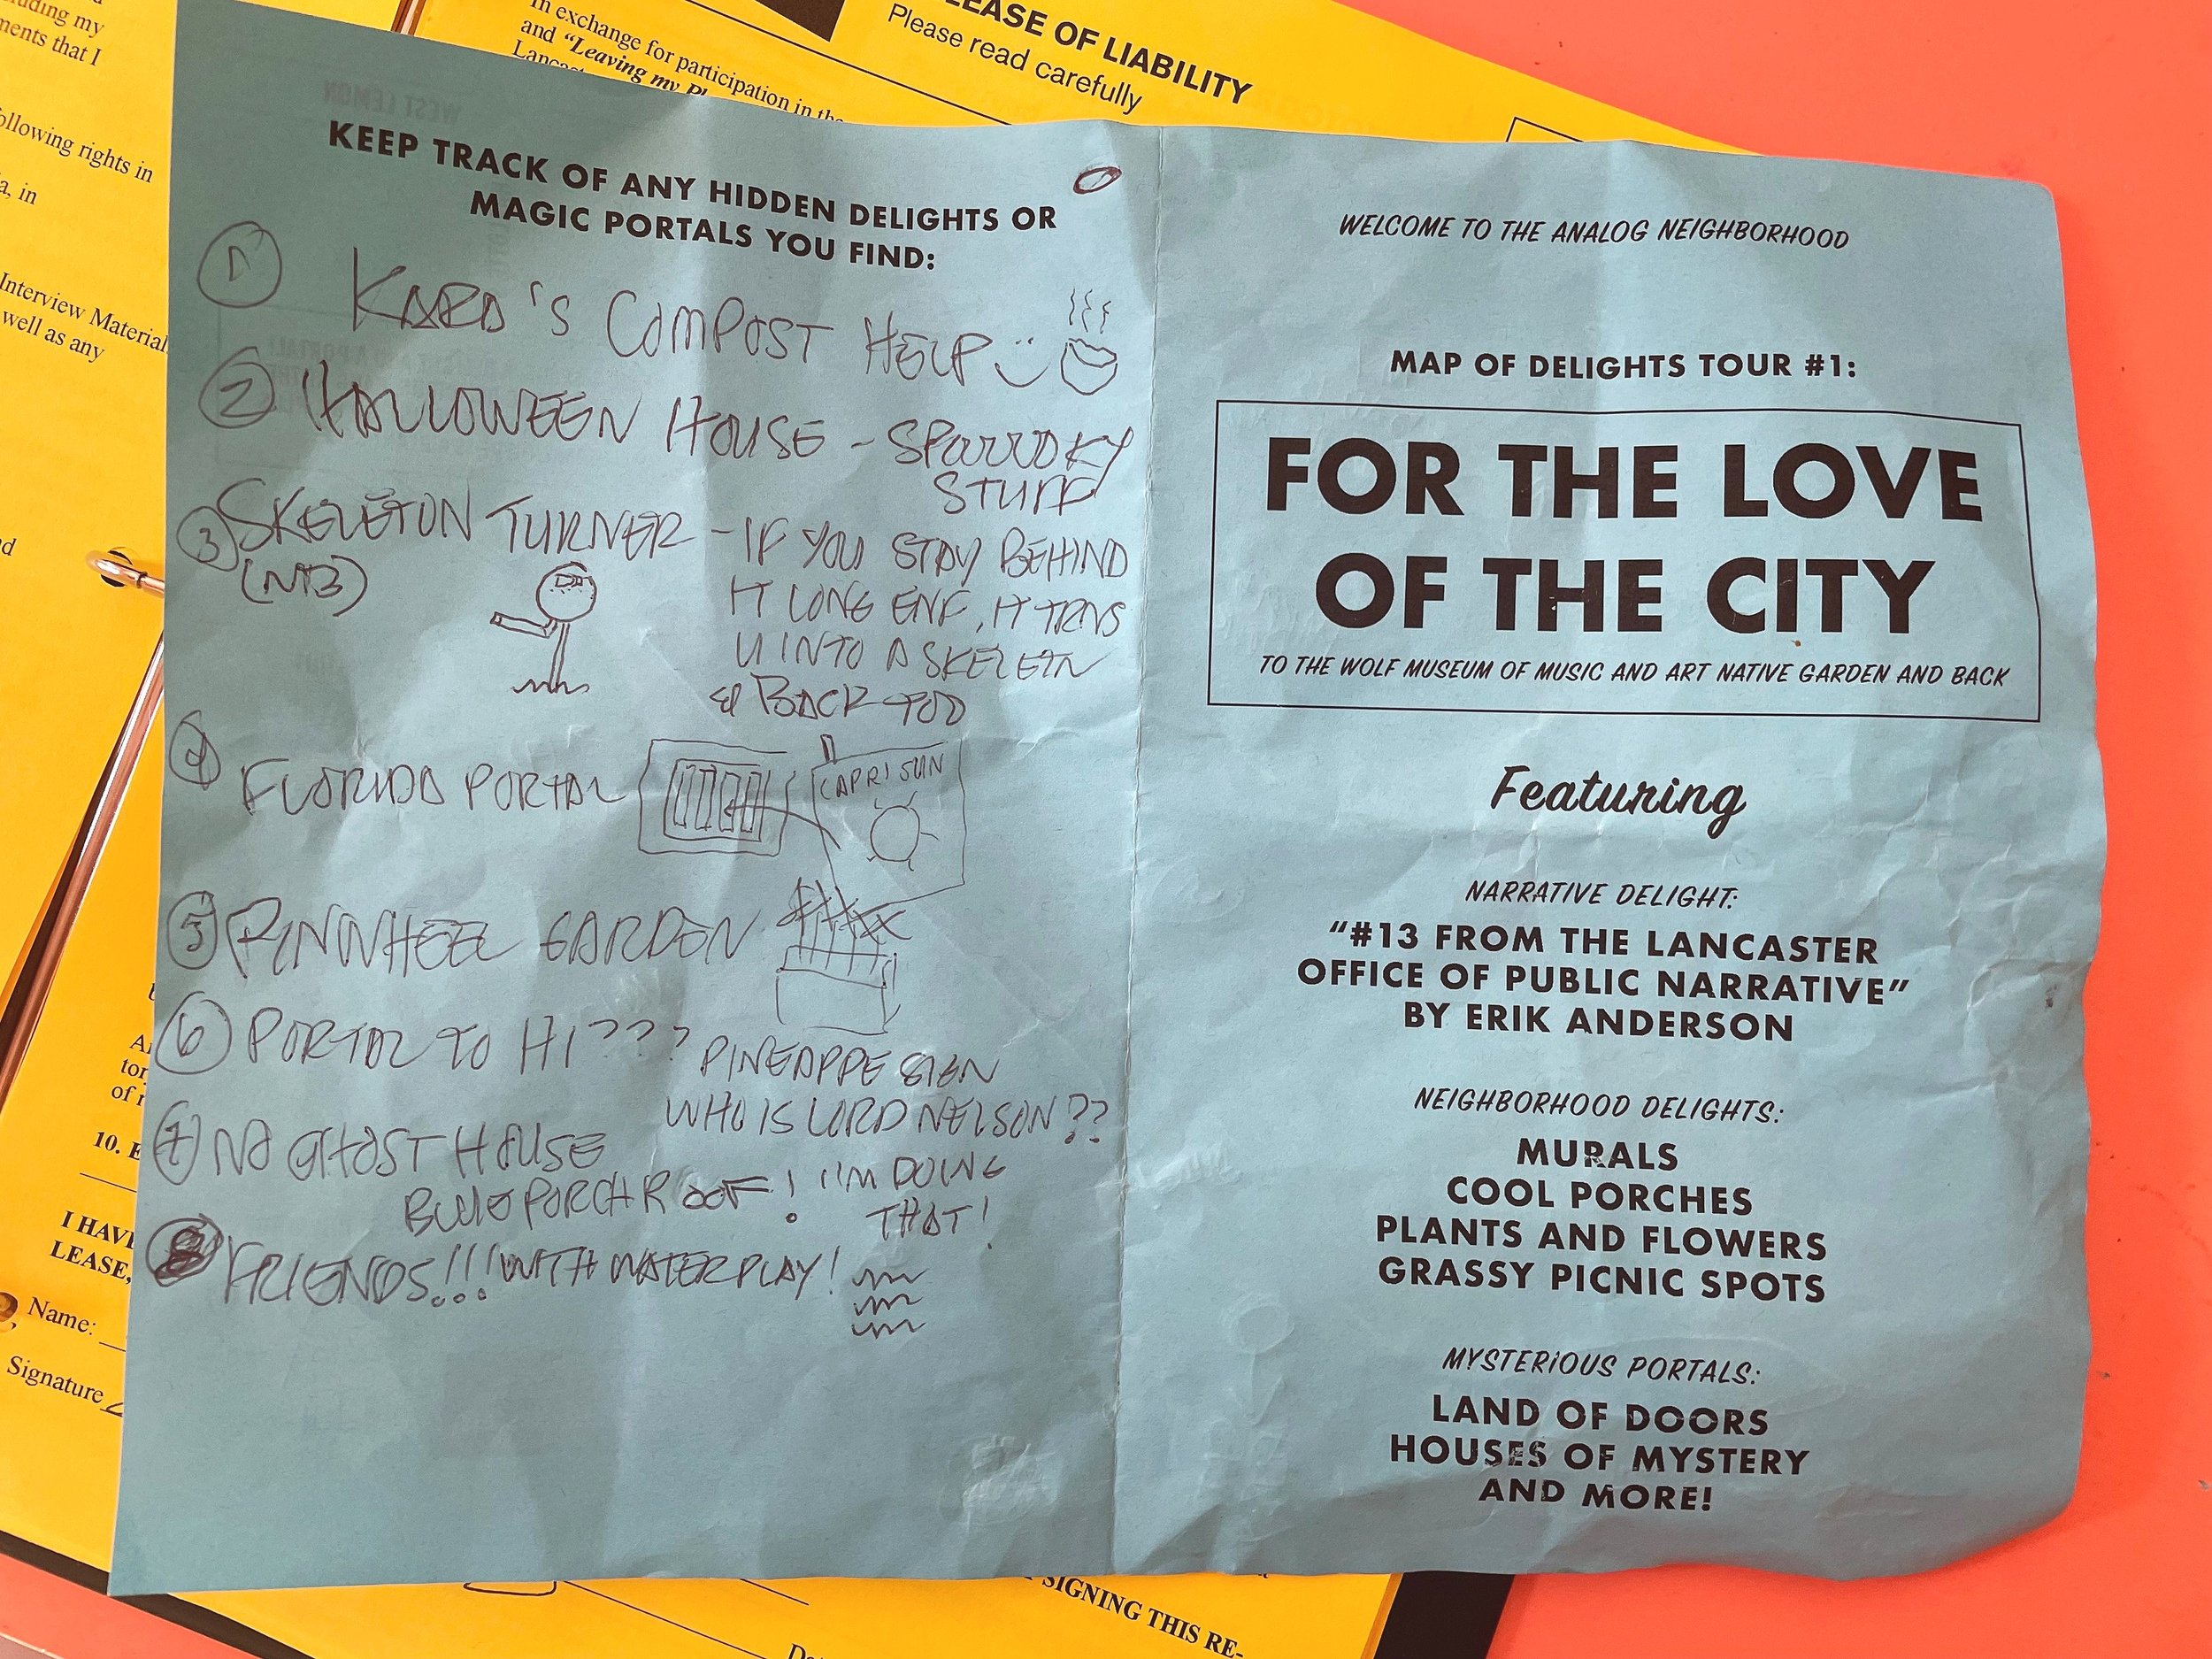 KEEP TRACK OF ANY HIDDEN DELIGHTS OR
MAGIC PORTALS YOU FIND:
1 KARA'S COMPOST HELP
2 HALLOWEEN HOUSE - SPOOOOKY
STUFF
3 SKELETON TURNER - IF YOU STAY BEHIND
(NB)
IT LONG ENF, IT TRNS
U INTO A SKELETN
& BACK TOO
4 FLORIDA PORTAL
CAPRI SUN
5 PINWHEEL GARDEN
6 PORTAL TO HI???
PINEAPPE SIGN
WHO IS LORD NELSON??
7 NO GHOST HOUSE
BLUE PORCH ROOF! I'M DOING
THAT!
8 FRIENDS!!! WITH WATER PLAY!
WELCOME TO THE ANALOG NEIGHBORHOOD
MAP OF DELIGHTS TOUR #1:
FOR THE LOVE
OF THE CITY
TO THE WOLF MUSEUM OF MUSIC AND ART NATIVE GARDEN AND BACK
Featuring
NARRATIVE DELIGHT:
"#13 FROM THE LANCASTER
OFFICE OF PUBLIC NARRATIVE"
BY ERIK ANDERSON
NEIGHBORHOOD DELIGHTS:
MURALS
COOL PORCHES
PLANTS AND FLOWERS
GRASSY PICNIC SPOTS
MYSTERIOUS PORTALS:
LAND OF DOORS
HOUSES OF MYSTERY
AND MORE!
OF LIABILITY
Please read carefully
In exchange for participation in the
and "Leaving my
my
ments that I
ollowing rights in
in
Interview Material
well as any
10.
I HAV
LEASE,
Name:
Signature
SIGNING THIS RE-